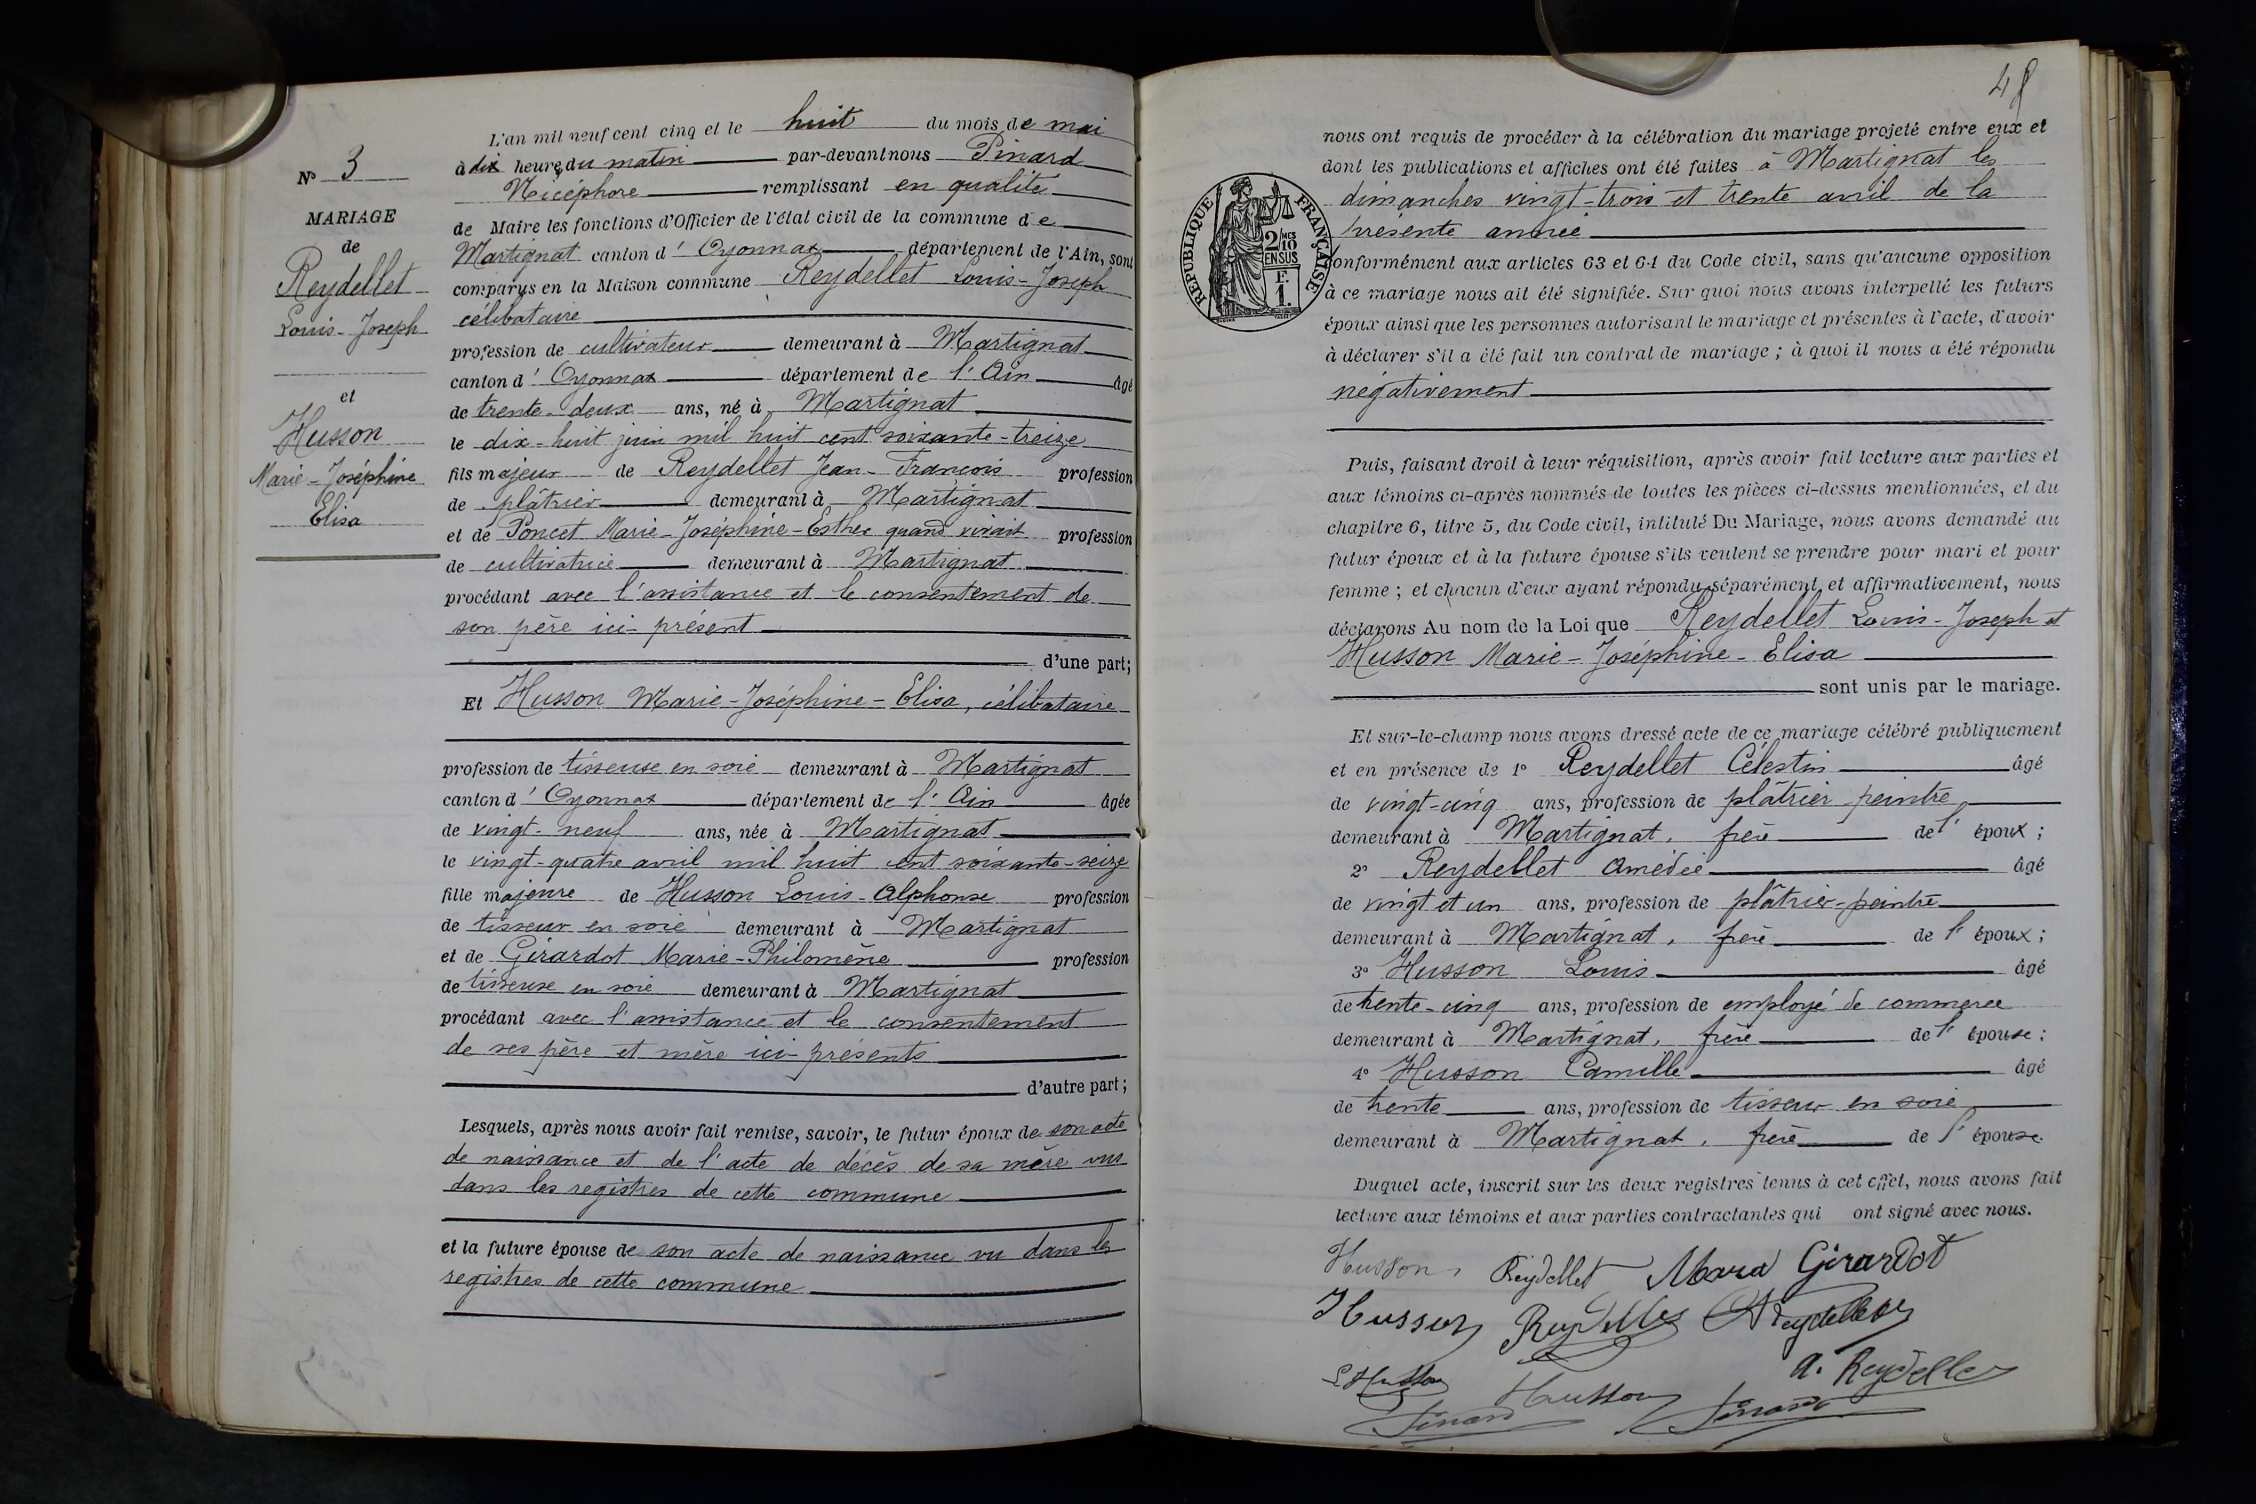 L'an mil neuf cent cinq et le huit du mois de mai
à dix heures du matin par-devant nous Pinard
Nicéphore remplissant en qualité
de Maire les fonctions d'Officier de l'état civil de la commune de
Martignat canton d'Oyonnax département de l'Ain, sont
comparus en la Maison commune Reydellet Louis-Joseph
célibataire
profession de cultivateur demeurant à Martignat
canton d'Oyonnax département de l'Ain âgé
de trente-deux ans, né à Martignat
le dix-huit juin mil huit cent soixante-treize
fils majeur de Reydellet Jean-François profession
de plâtrier demeurant à Martignat
et de Poncet Marie-Joséphine-Esther quand vivait profession
de cultivatrice demeurant à Martignat
procédant avec l'assistance et le consentement de
son père ici-présent
d'une part;
Et Husson Marie-Joséphine-Elisa, célibataire
profession de tisseuse en soie demeurant à Martignat
canton d'Oyonnax département de l'Ain âgée
de vingt-neuf ans, née à Martignat
le vingt-quatre avril mil huit cent soixante-seize
fille majeure de Husson Louis-Alphonse profession
de tisseur en soie demeurant à Martignat
et de Girardot Marie-Philomène profession
de tisseuse en soie demeurant à Martignat
procédant avec l'assistance et le consentement
de ses père et mère ici-présents
d'autre part;
Lesquels, après nous avoir fait remise, savoir, le futur époux de son acte
de naissance et de l'acte de décès de sa mère vus
dans les registres de cette commune
et la future épouse de son acte de naissance vu dans les
registres de cette commune
N° 3
MARIAGE
de
Reydellet
Louis-Joseph
et
Husson
Marie-Joséphine
Elisa
48
nous ont requis de procéder à la célébration du mariage projeté entre eux et
dont les publications et affiches ont été faites à Martignat les
dimanches vingt-trois et trente avril de la
présente année
conformément aux articles 63 et 64 du Code civil, sans qu'aucune opposition
à ce mariage nous ait été signifiée. Sur quoi nous avons interpellé les futurs
époux ainsi que les personnes autorisant le mariage et présentes à l'acte, d'avoir
à déclarer s'il a été fait un contrat de mariage ; à quoi il nous a été répondu
négativement
RÉPUBLIQUE FRANÇAISE
2/10 MES
EN SUS
F.
1.
Puis, faisant droit à leur réquisition, après avoir fait lecture aux parties et
aux témoins ci-après nommés de toutes les pièces ci-dessus mentionnées, et du
chapitre 6, titre 5, du Code civil, intitulé Du Mariage, nous avons demandé au
futur époux et à la future épouse s'ils veulent se prendre pour mari et pour
femme ; et chacun d'eux ayant répondu séparément et affirmativement, nous
déclarons Au nom de la Loi que Reydellet Louis-Joseph et
Husson Marie-Joséphine-Elisa
sont unis par le mariage.
Et sur-le-champ nous avons dressé acte de ce mariage célébré publiquement
et en présence de 1° Reydellet Célestin âgé
de vingt-cinq ans, profession de plâtrier-peintre
demeurant à Martignat, frère de l'époux ;
2° Reydellet Amédée âgé
de vingt et un ans, profession de plâtrier-peintre
demeurant à Martignat, frère de l'époux ;
3° Husson Louis âgé
de trente-cinq ans, profession de employé de commerce
demeurant à Martignat, frère de l'épouse ;
4° Husson Camille âgé
de trente ans, profession de tisseur en soie
demeurant à Martignat, frère de l'épouse.
Duquel acte, inscrit sur les deux registres tenus à cet effet, nous avons fait
lecture aux témoins et aux parties contractantes qui ont signé avec nous.
Husson Reydellet Maria Girardot
Husson Reydellet Reydellet
L Husson Husson A. Reydellet
Pinard Pinard